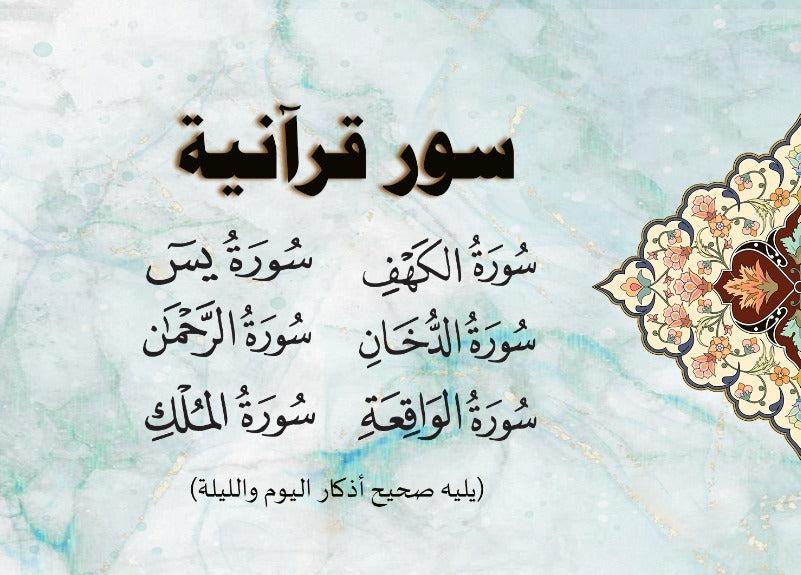 سور قرآنية
سُورَةُ الكَهْفِ سُورَةُ يسٓ
سُورَةُ الدُّخَانِ سُورَةُ الرَّحْمَٰن
سُورَةُ الوَاقِعَةِ سُورَةُ المُلْكِ
(يليه صحيح أذكار اليوم والليلة)